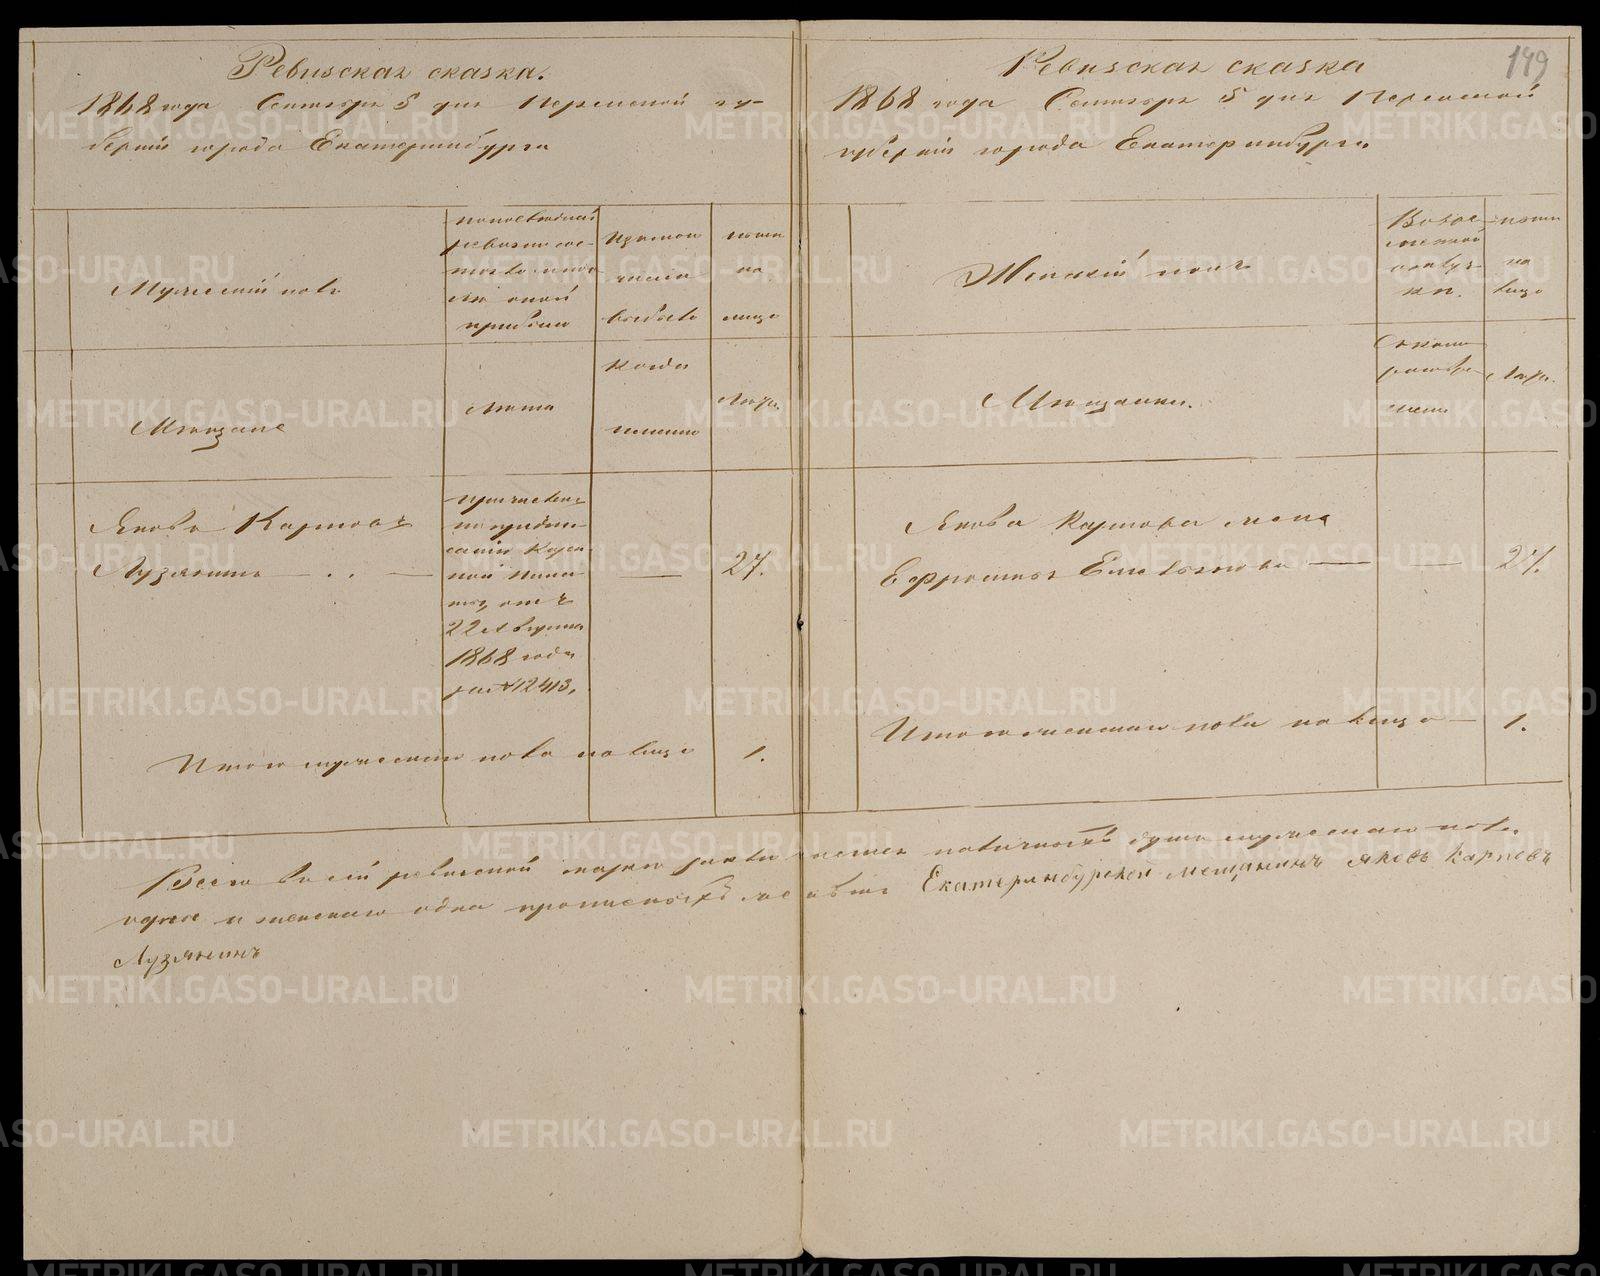 Ревизская сказка.
1868 года Сентября 5 дня Пермской гу-
берніи города Екатеринбурга
Мужескій полъ
по последней
ревизіи со-
стояло или
после оной
прибыли
Изъ того
числа
выбыло
ныне
на
лицо
Мещане
Лета
Когда
именно
Лета.
Яковъ Карповъ
Лузянинъ
причисленъ
по предпи-
санію Казен
ной Пала
ты, отъ
22 Августа
1868 года
за №12413.
—
27.
Итого мужеска пола на лицо 1.
149
Ревизская сказка
1868 года Сентября 5 дня Пермской
губерніи города Екатеринбурга.
Женскій полъ
Во вре
менной
отлуч-
ке.
ныне
на
лицо
Мещанки.
Съ кото
раго вре-
мени
Лета.
Якова Карпова жена
Ефросинья Емельянова — — 27.
Итого женскаго пола на лицо — 1.
Всего въ сей ревизской сказке наличныхъ душъ мужескаго пола
одна и женскаго одна Екатеринбурской мещанинъ Яковъ Карповъ
Лузянинъ
METRIKI.GASO-URAL.RU